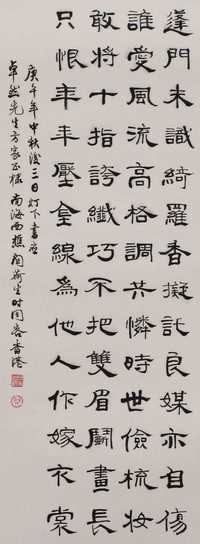 蓬門未識綺羅香擬託良媒亦自傷
誰愛風流高格調共憐時世儉梳妝
敢將十指誇纖巧不把雙眉鬭畫長
只恨年年壓金線為他人作嫁衣裳
庚午年中秋後三日灯下書應
卓然先生方家正 南海西樵関生时同客香港